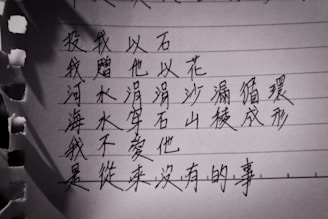 投我以石
我贈他以花
河水涓涓沙漏循環
海水穿石山棱成形
我不愛他
是從來沒有的事